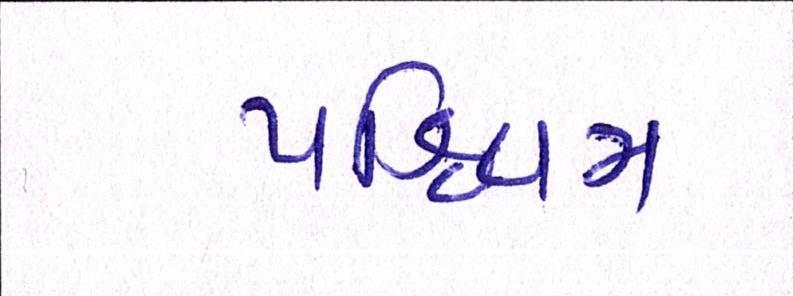 પશ્ચિમ